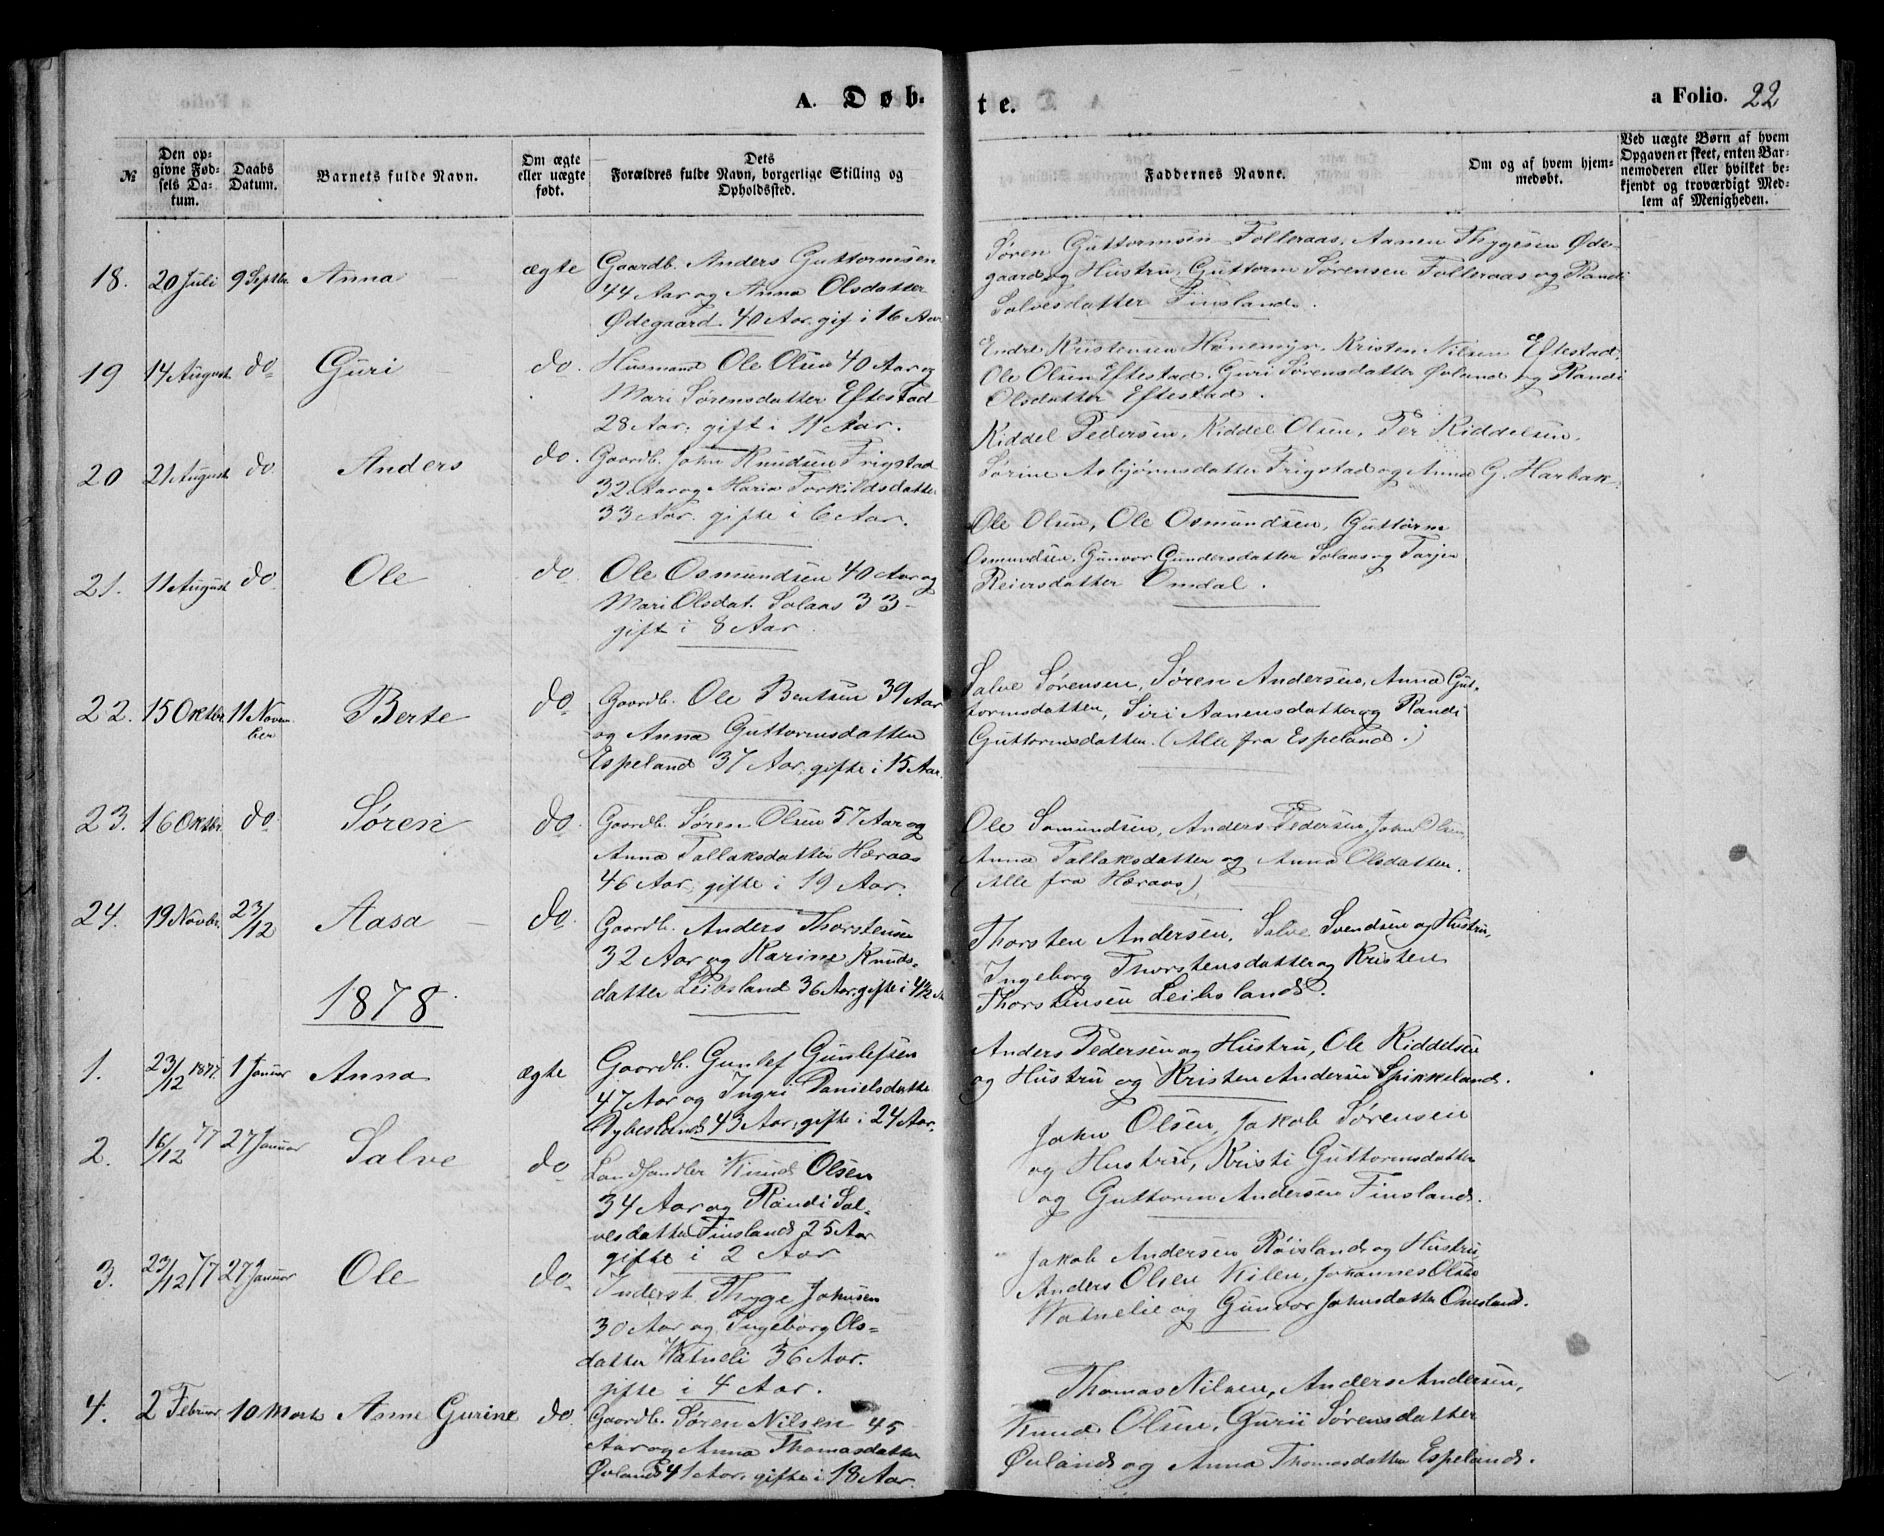 A. Døb-
te.
a Folio. 22
№
Den opgivne Fødsels Datum.
Daabs Datum.
Barnets fulde Navn.
Om ægte eller uægte født.
Dets Forældres fulde Navn, borgerlige Stilling og Opholdssted.
Faddernes Navne.
Om og af hvem hjemmedøbt.
Ved uægte Børn af hvem Opgaven er skeet, enten Barnemoderen eller hvilket bekjendt og troværdigt Medlem af Menigheden.
18. 20 Juli 9 Septbr. Anna ægte
Gaardb. Anders Guttormsen
44 Aar og Anna Olsdatter
Ødegaard 40 Aar, gift i 16 Aar
Søren Guttormsen Folleraas, Aanen Thygesen Øde-
gaard og Hustru, Guttorm Sørensen Folleraas og Randi
Salvesdatter Finsland.
19 14 August do Guri do.
Husmand Ole Olsen 40 Aar og
Mari Sørensdatter Eftestad
28 Aar, gift i 11 Aar.
Endre Kristensen Hønemyr, Kristen Nilsen Eftestad,
Ole Olsen Eftestad, Guri Sørensdatter Øvland og Randi
Olsdatter Eftestad.
20 21 August do. Anders do.
Gaardb. John Knudsen Frigstad
32 Aar og Maria Torkildsdatter
33 Aar. gifte i 6 Aar.
Kiddel Pedersen, Kiddel Olsen, Per Kiddelsen,
Sørine Asbjørnsdatter Frigstad og Anna G. Harbak.
21. 11 August do Ole do
Ole Osmundsen 40 Aar og
Mari Olsdat. Solaas 33 -
gift i 8 Aar.
Ole Olsen, Ole Osmundsen, Guttorm
Osmundsen, Gunvor Gundersdatter Solaas og Tarjer
Reiersdatter Omdal.
22. 15 Oktbr 11 November Berte do
Gaardb. Ole Bentsen 39 Aar
og Anna Guttormsdatter
Espeland 37 Aar, gifte i 15 Aar.
Salve Sørensen, Søren Andersen, Anna Gut-
tormsdatter, Siri Aanensdatter og Randi
Guttormsdatter. (Alle fra Espeland.)
23. 16 Oktbr. do Søren do.
Gaardb. Søren Olsen 57 Aar og
Anna Tallaksdatter Hæraas
46 Aar, gifte i 19 Aar.
Ole Somundsen, Anders Pedersen, John Olsen,
Anna Tallaksdatter og Anna Olsdatter.
(Alle fra Hæraas)
24. 19 Novbr. 23/12 Aasa do.
Gaardb. Anders Thorstensen
32 Aar og Karine Knuds-
datter Leibsland 36 Aar, gifte i 4½ A
Thorsten Andersen, Salve Svendsen og Hustru,
Ingeborg Thorstensdatter og Kristen
Thorstensen Leibsland.
1878
1. 23/12 1877. 1 Januar Anna ægte
Gaardb. Gunlef Gunlefsen
47 Aar og Ingri Danielsdatte
Dybesland 43 Aar, gifte i 24 Aar.
Anders Pedersen og Hustru, Ole Kiddelsen
og Hustru og Kristen Andersen Spikkeland.
2. 16/12 77 27 Januar Salve do
Landhandler Knud Olsen
34 Aar og Randi Sal-
vesdatter Finsland 25 Aar
gifte i 2 Aar
John Olsen, Jakob Sørensen
og Hustru, Kristi Guttormsdatter
og Guttorm Andersen Finsland.
3. 23/12 77 27 Januar Ole do.
Inderst Thyge Johnsen
30 Aar og Ingeborg Ols-
datter Vatneli 36 Aar.
gifte i 4 Aar.
Jakob Andersen Røisland og Hustru,
Anders Olsen Kilen, Johannes Olsen
Vatnelie og Gunvor Johnsdatter Omsland.
4. 2 Februar 10 Marts Anne Gurine do.
Gaardb. Søren Nilsen 45
Aar og Anna Thomasdatter
Øvland 41 Aar, gifte i 18 Aar.
Thomas Nilsen, Anders Andersen,
Knud Olsen, Gurii Sørensdatter
Øvland og Anna Thomasdatter Espeland.